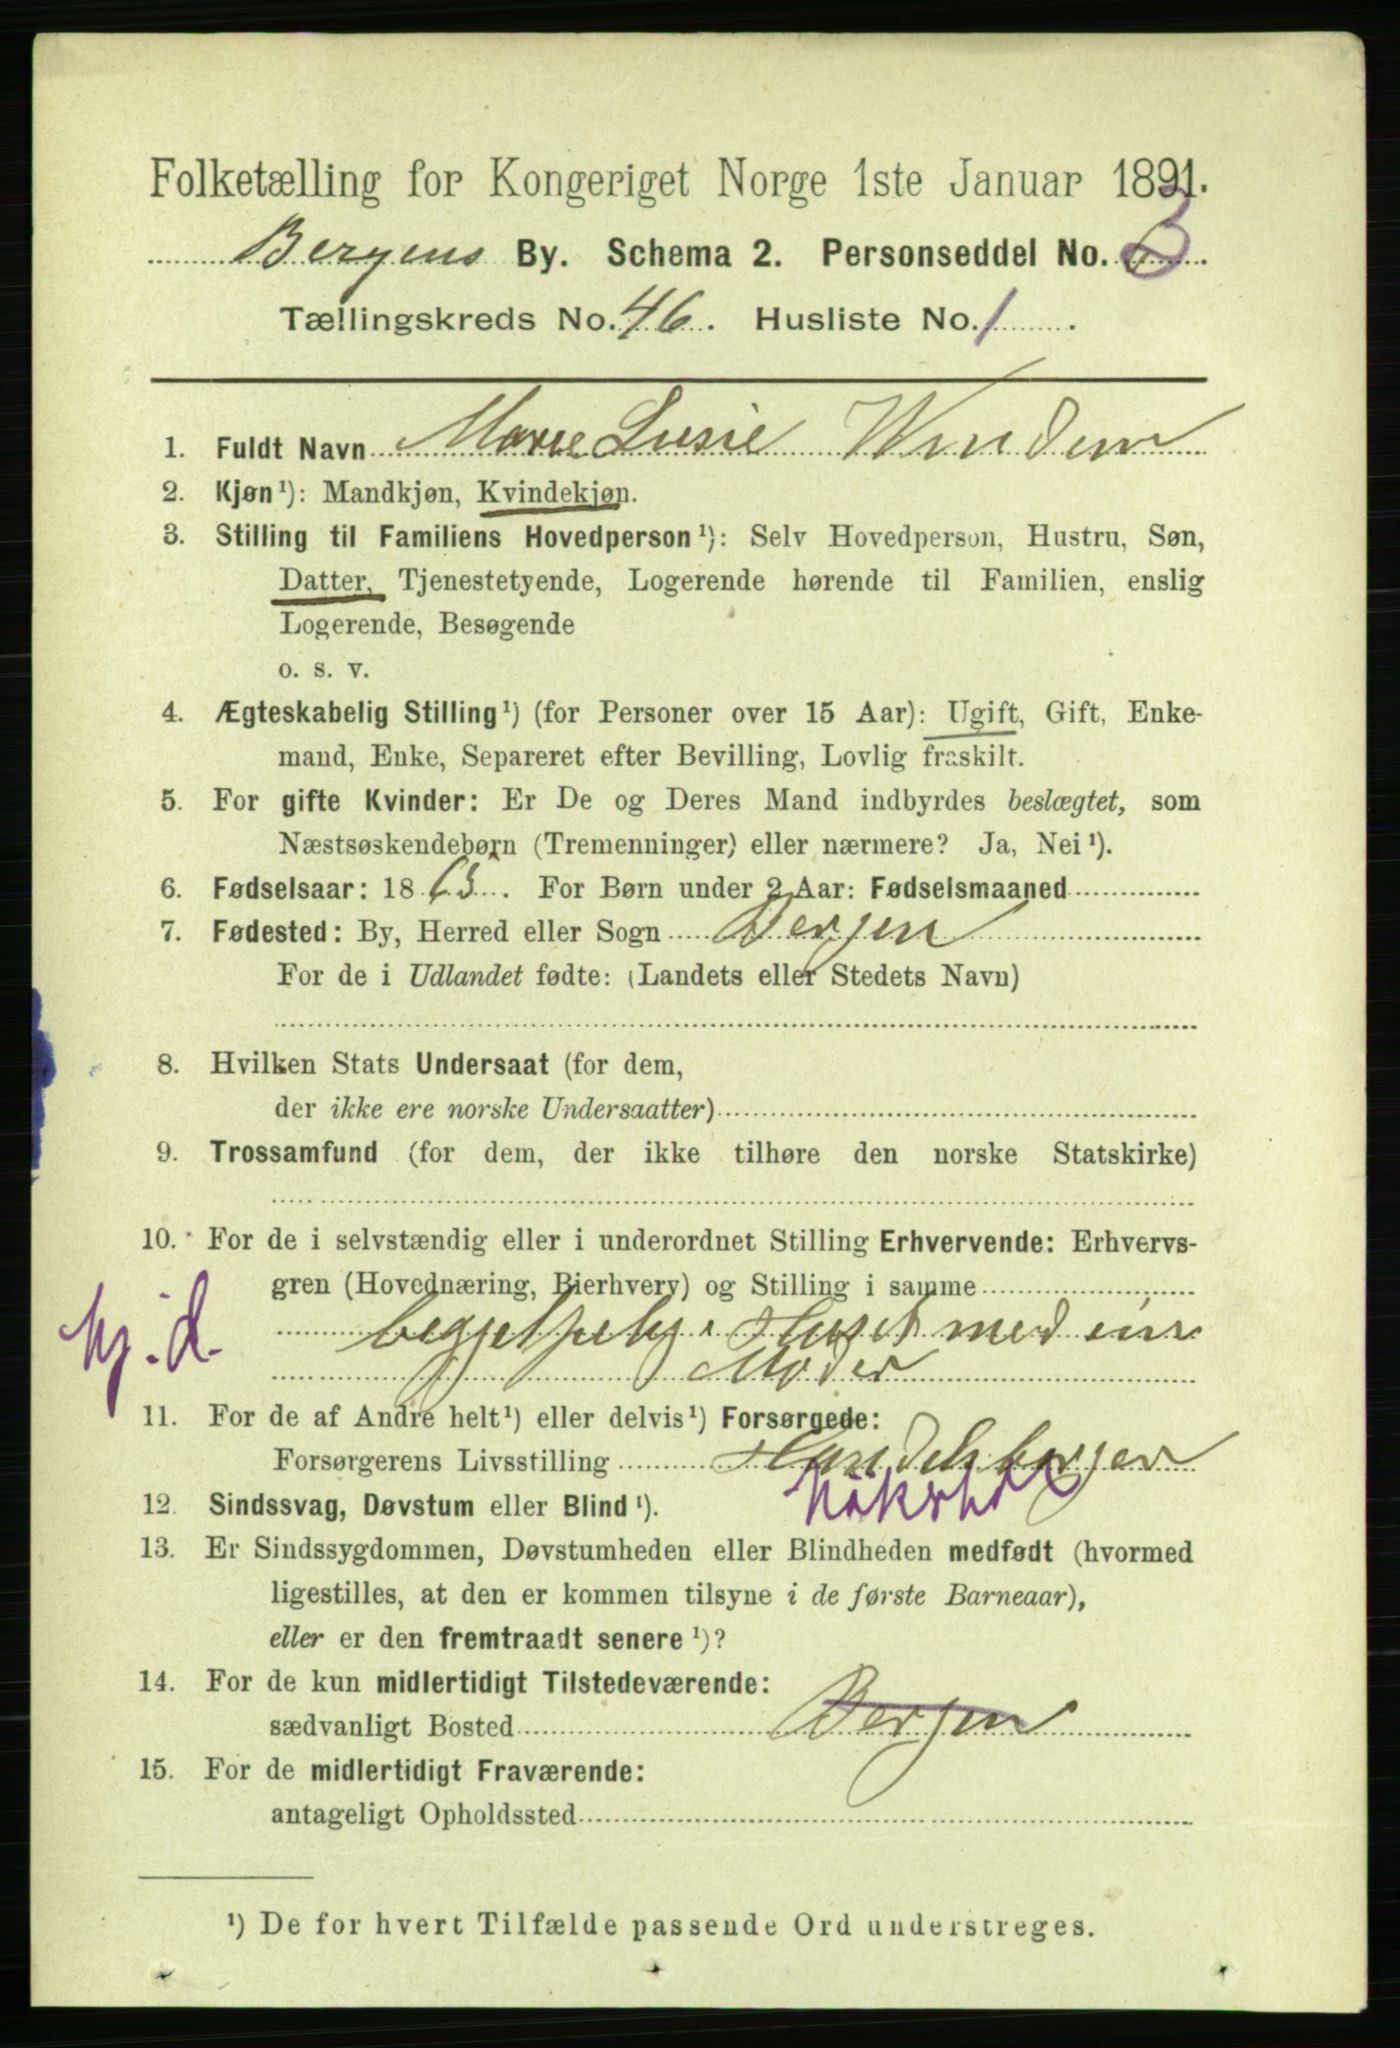 Folketælling for Kongeriget Norge 1ste Januar 1891.
Bergens By. Schema 2. Personseddel No. 3
Tællingskreds No. 46. Husliste No. 1.
1. Fuldt Navn Marie Lusie
2. Kjøn ¹): Mandkjøn, Kvindekjøn.
3. Stilling til Familiens Hovedperson ¹): Selv Hovedperson, Hustru, Søn,
Datter, Tjenestetyende, Logerende hørende til Familien, enslig
Logerende, Besøgende
o. s. v.
4. Ægteskabelig Stilling ¹) (for Personer over 15 Aar): Ugift, Gift, Enke-
mand, Enke, Separeret efter Bevilling, Lovlig fraskilt.
5. For gifte Kvinder: Er De og Deres Mand indbyrdes beslægtet, som
Næstsøskendebørn (Tremenninger) eller nærmere? Ja, Nei ¹).
6. Fødselsaar: 1863. For Børn under 2 Aar: Fødselsmaaned
7. Fødested: By, Herred eller Sogn Bergen
For de i Udlandet fødte: (Landets eller Stedets Navn)
8. Hvilken Stats Undersaat (for dem,
der ikke ere norske Undersaatter)
9. Trossamfund (for dem, der ikke tilhøre den norske Statskirke)
10. For de i selvstændig eller i underordnet Stilling Erhvervende: Erhvervs-
gren (Hovednæring, Bierhverv) og Stilling i samme
i Huset med sin
hj. d. Moder
11. For de af Andre helt ¹) eller delvis ¹) Forsørgede:
Forsørgerens Livsstilling Handelsborger
12. Sindssvag, Døvstum eller Blind ¹).
13. Er Sindssygdommen, Døvstumheden eller Blindheden medfødt (hvormed
ligestilles, at den er kommen tilsyne i de første Barneaar),
eller er den fremtraadt senere ¹)?
14. For de kun midlertidigt Tilstedeværende:
sædvanligt Bosted Bergen
15. For de midlertidigt Fraværende:
antageligt Opholdssted
¹) De for hvert Tilfælde passende Ord understreges.